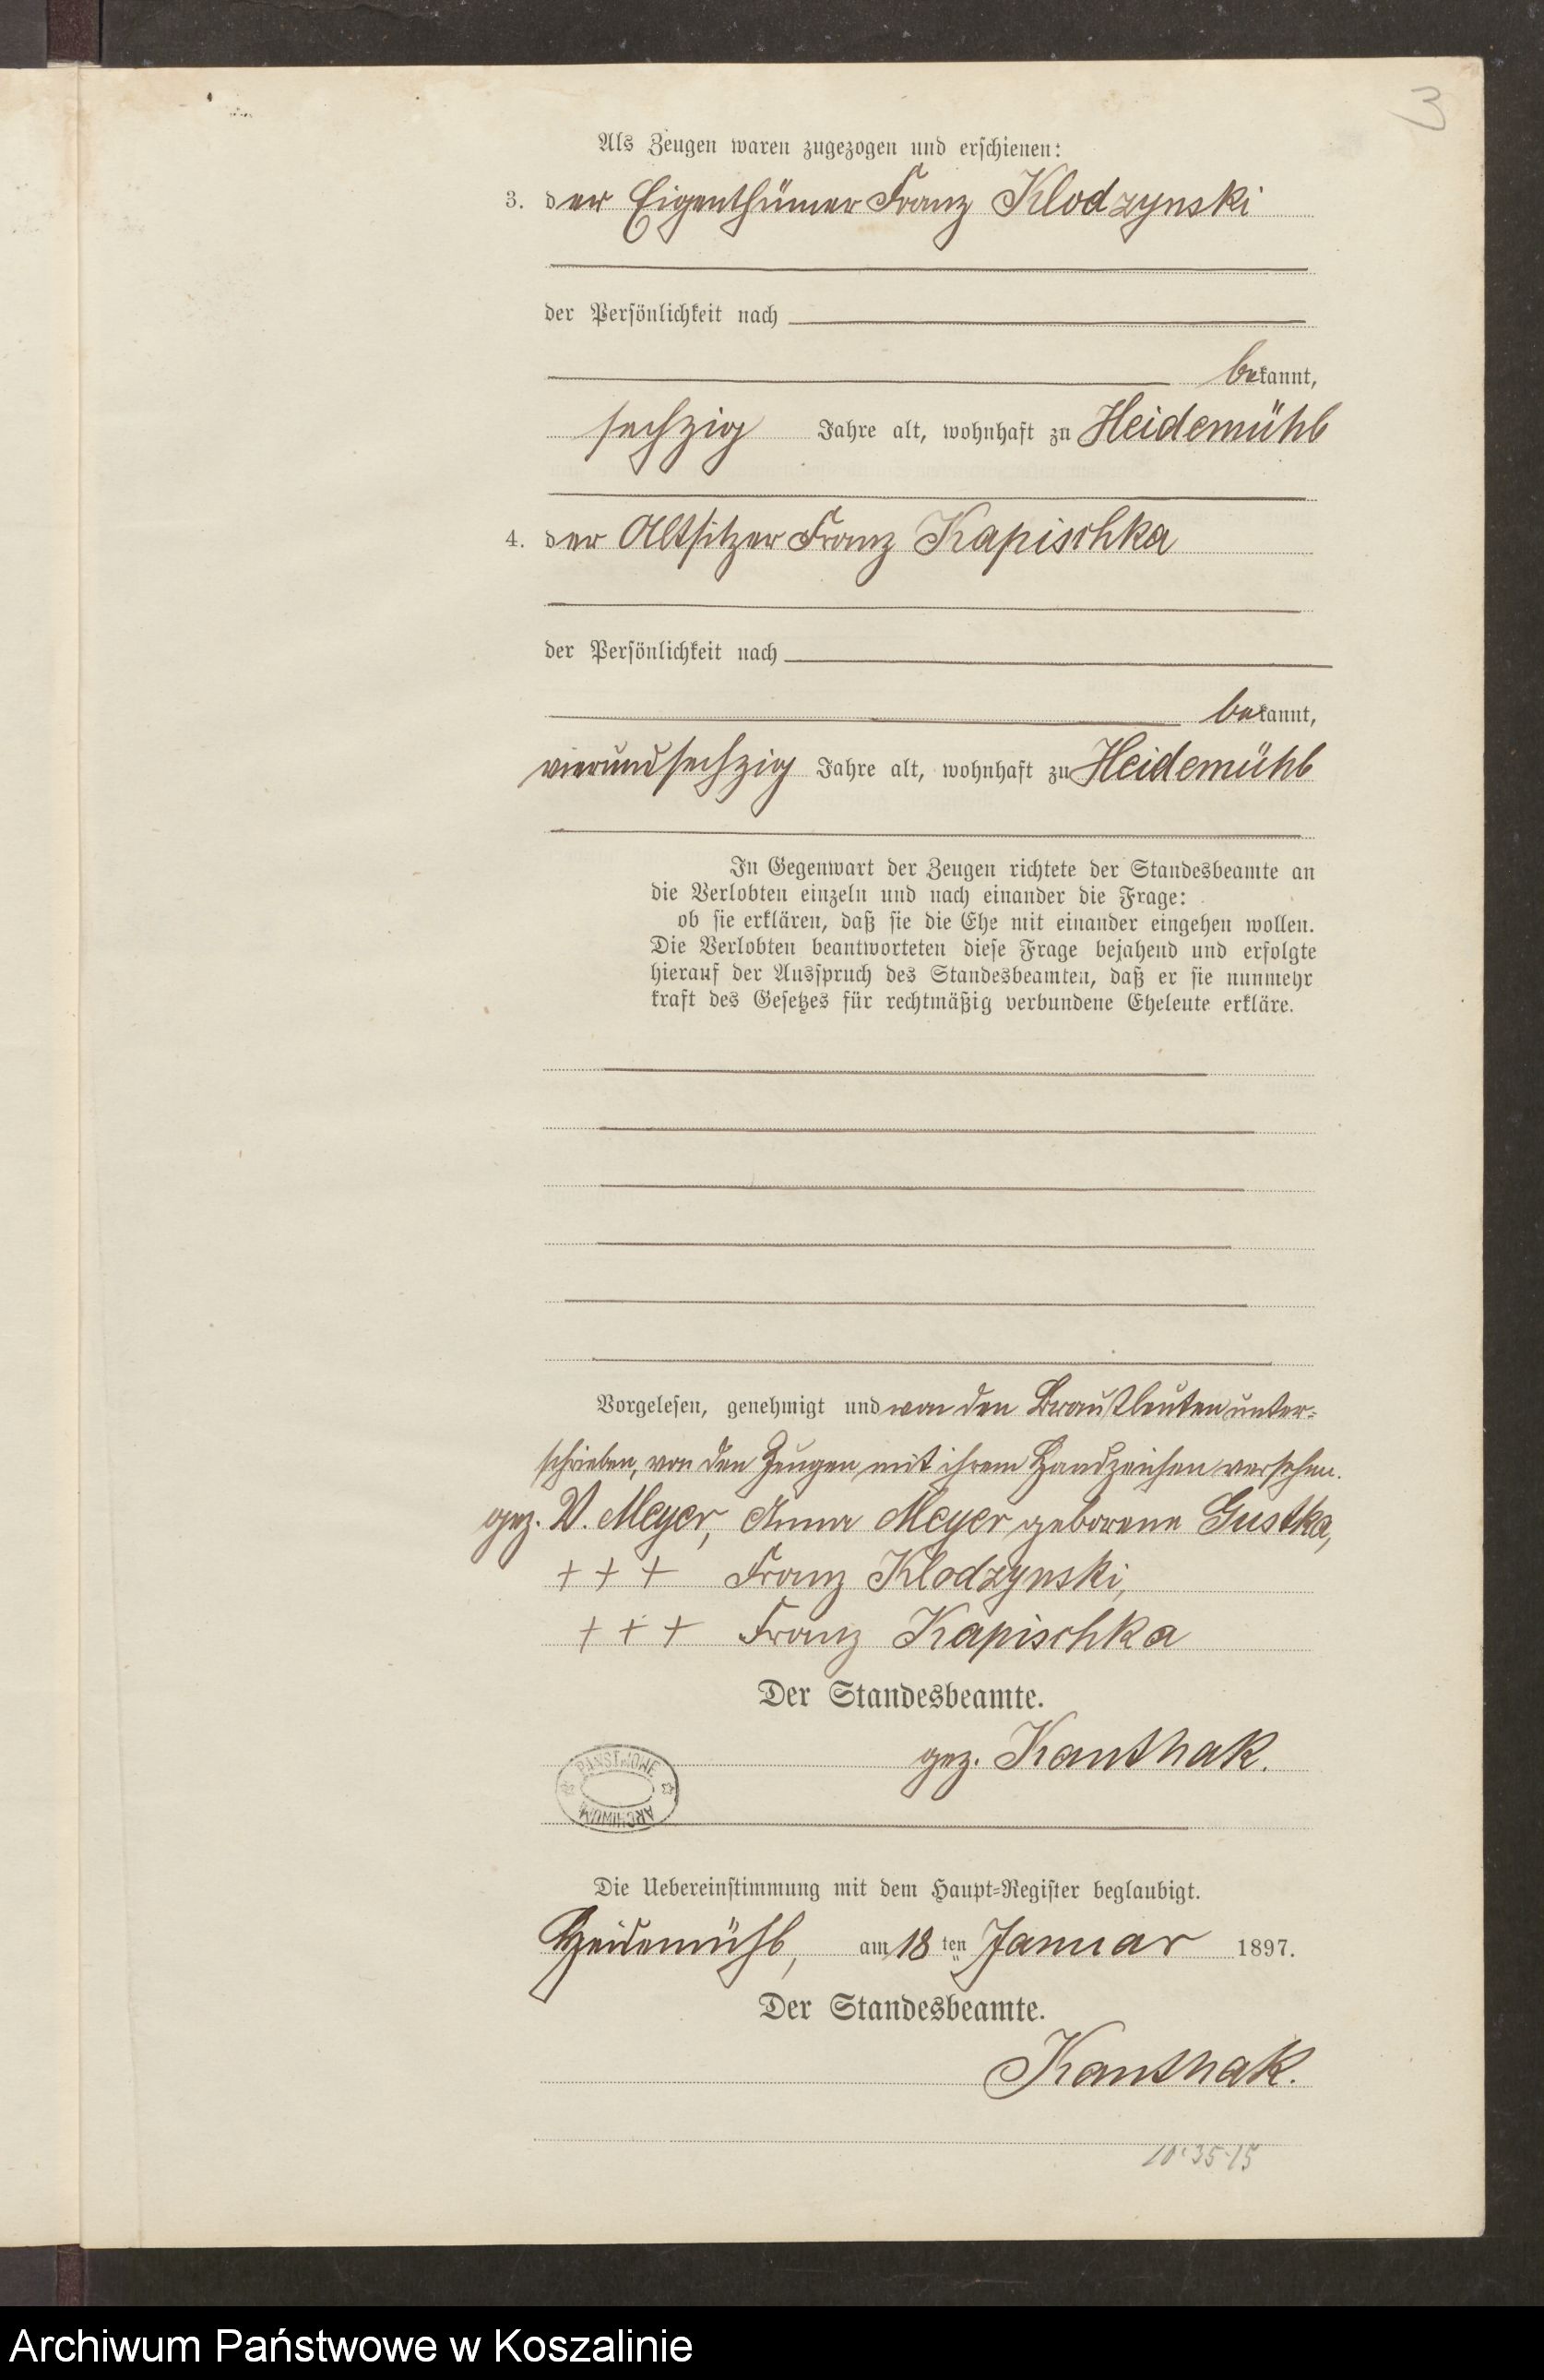 3
Als Zeugen waren zugezogen und erschienen:
3. der Eigenthümer Franz Klodzynski
der Persönlichkeit nach
bekannt,
sechzig Jahre alt, wohnhaft zu Heidemühl
4. der Altsitzer Franz Kapischka
der Persönlichkeit nach
bekannt,
vierundsechzig Jahre alt, wohnhaft zu Heidemühl
In Gegenwart der Zeugen richtete der Standesbeamte an
die Verlobten einzeln und nach einander die Frage:
ob sie erklären, daß sie die Ehe mit einander eingehen wollen.
Die Verlobten beantworteten diese Frage bejahend und erfolgte
hierauf der Ausspruch des Standesbeamten, daß er sie nunmehr
kraft des Gesetzes für rechtmäßig verbundene Eheleute erkläre.
Vorgelesen, genehmigt und von den Brautleuten unter-
schrieben, von den Zeugen mit ihrem Handzeichen versehen.
gez. W. Meyer, Anna Meyer geborene Gustka,
+ + + Franz Klodzynski,
+ + + Franz Kapischka
Der Standesbeamte.
gez. Kanthak.
PAŃSTWOWE ARCHIWUM
Die Uebereinstimmung mit dem Haupt-Register beglaubigt.
Heidemühl, am 18ten Januar 1897.
Der Standesbeamte.
Kanthak.
Archiwum Państwowe w Koszalinie